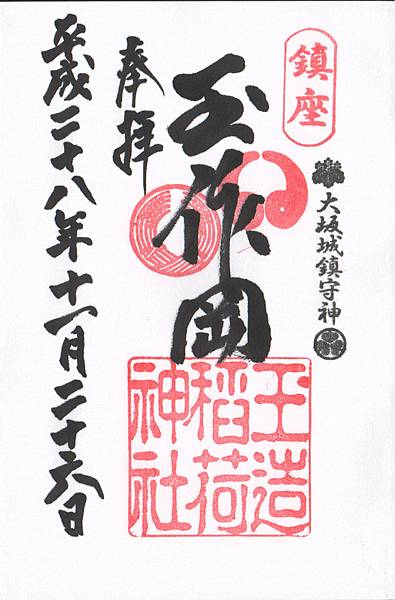 鎮座
大坂城鎮守神
玉作岡
玉造
稲荷
神社
奉拝
平成二十八年十一月二十六日